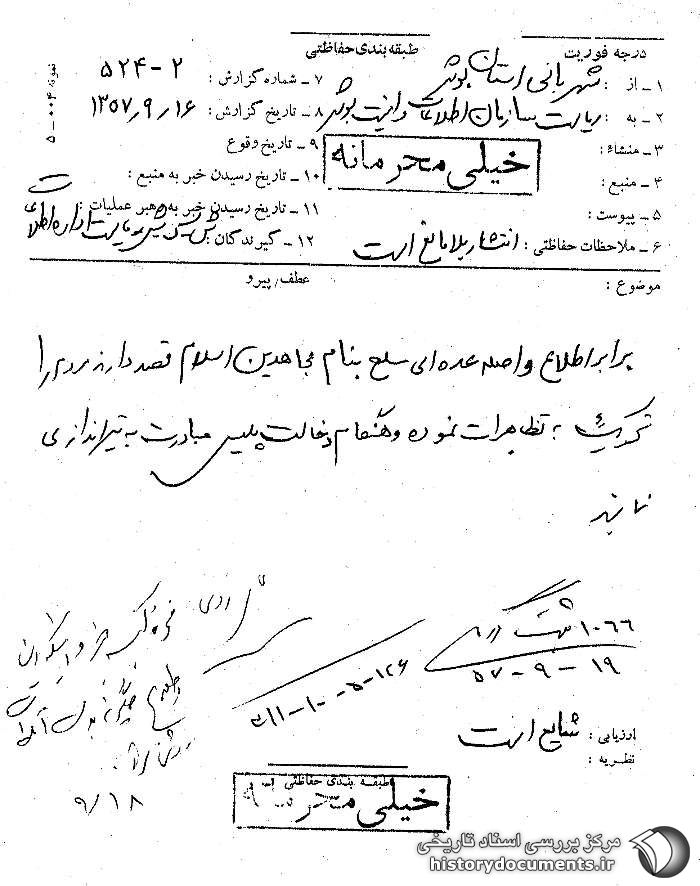 درجه فوریت
طبقه بندی حفاظتی
۱ - از : شهربانی استان بوشهر
۷ - شماره گزارش : ۲ - ۵۲۴
نمونه ۰۰۴ - ۵
۲ - به : ریاست سازمان اطلاعات و امنیت بوشهر
۸ - تاریخ گزارش : ۱۳۵۷٫۹٫۱۶
۳ - منشاء :
۹ - تاریخ وقوع
خیلی محرمانه
۴ - منبع :
۱۰ - تاریخ رسیدن خبر به منبع :
۵ - پیوست :
۱۱ - تاریخ رسیدن خبر به رهبر عملیات :
۶ - ملاحظات حفاظتی : انتشار بلامانع است
۱۲ - گیرندگان : اداره اطلاعات
موضوع :
عطف/ پیرو
برابر اطلاع واصله عده‌ای مسلح بنام مجاهدین اسلام قصد دارند مردم را
تحریک به تظاهرات نموده و هنگام دخالت پلیس مبادرت به تیراندازی
نمایند
۱۰۶۶ ثبت گردید
۵۷ - ۹ - ۱۹
۹/۱۸
ارزیابی : شایع است
نظریه :
طبقه بندی حفاظتی
خیلی محرمانه
مرکز بررسی اسناد تاریخی
historydocuments.ir